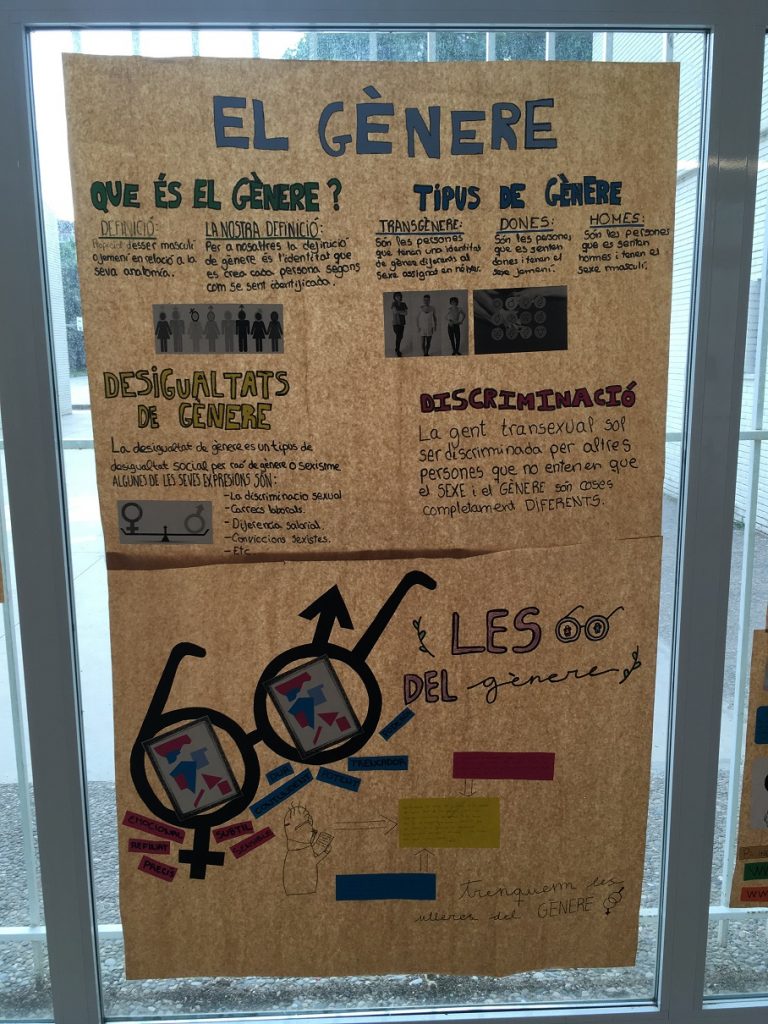 EL GÈNERE
QUE ÉS EL GÈNERE?
DEFINICIÓ:
d'esser masculí
o femení en relació a la
seva anatomia.
LA NOSTRA DEFINICIÓ:
Per a nosaltres la definició
de gènere és l'identitat que
es crea cada persona segons
com se sent identificada.
TIPUS DE GÈNERE
TRANSGÈNERE:
Són les persones
que tenen una identitat
de gènere diferents al
sexe assignat en néixer.
DONES:
Són les persones
que es senten
dones i tenen el
sexe femení.
HOMES:
Són les persones
que es senten
homes i tenen el
sexe masculí.
DESIGUALTATS
DE GÈNERE
La desigualtat de gènere es un tipus de
desigualtat social per raó de gènere o sexisme
ALGUNES DE LES SEVES EXPRESIONS SÓN:
-La discriminacio sexual
-Carrecs laborals.
-Diferencia salarial.
-Conviccions sexistes.
-Etc
DISCRIMINACIÓ
La gent transexual sol
ser discriminada per altres
persones que no entenen que
el SEXE i el GÈNERE són coses
completament DIFERENTS.
LES
DEL gènere
EMOCIONAL
REFILAT
PRECÍS
SUBTIL
DUR
CONTUNDENT
POTENT
TREVCADOR
trenquem les
ulleres del GÈNERE